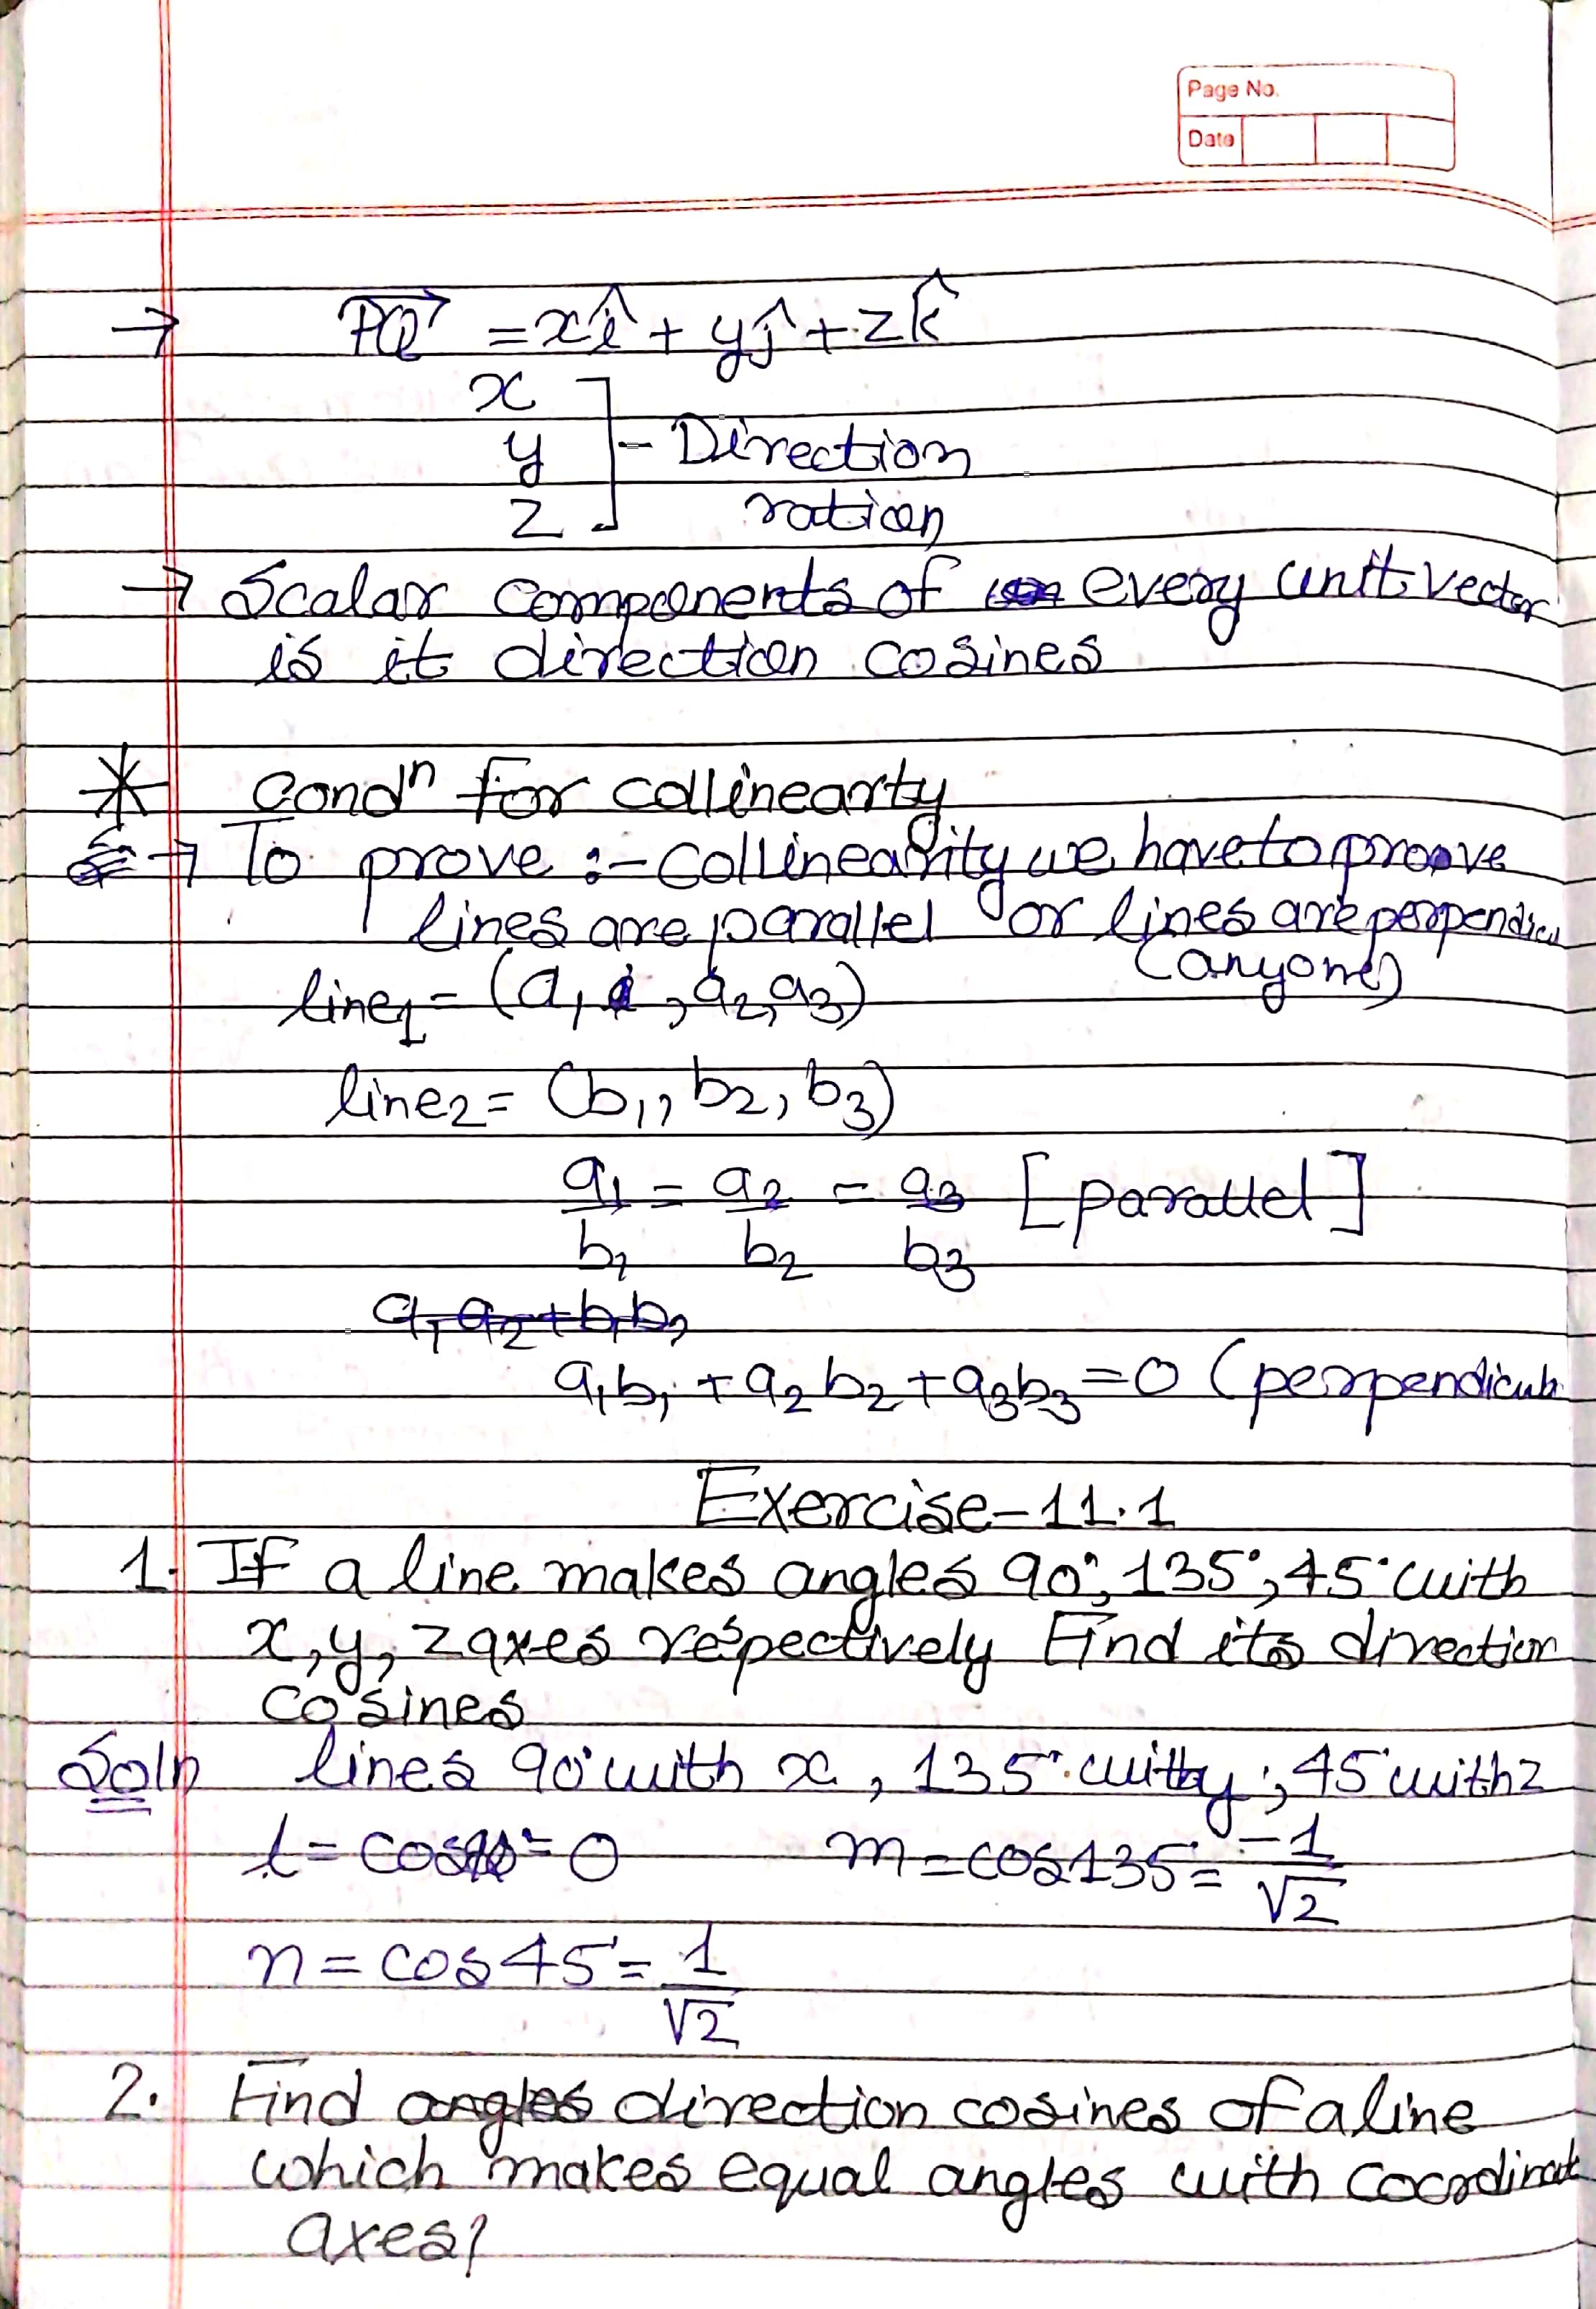 Page No.
Date
→ PQ⃗ = xî + yĵ + zk̂
x
y ] - Direction
z ration
→ Scalar components of every unit vector
is it direction cosines
* Condⁿ For collinearty
→ To prove :- Collinearity we have to proove
lines are parallel or lines are perpendicu
(anyone)
line1 = (a1, a2, a3)
line2 = (b1, b2, b3)
a1/b1 = a2/b2 = a3/b3 [parallel]
a1 a2 + b1 b2
a1b1 + a2b2 + a3b3 = 0 (perpendicul
Exercise-11.1
1. If a line makes angles 90°, 135°, 45° with
x, y, z axes respectively Find its direction
cosines
Soln lines 90° with x, 135° with y, 45° with z
l = cos90° = 0 m = cos135° = -1/√2
n = cos45° = 1/√2
2. Find angles direction cosines of a line
which makes equal angles with coordinat
axes?